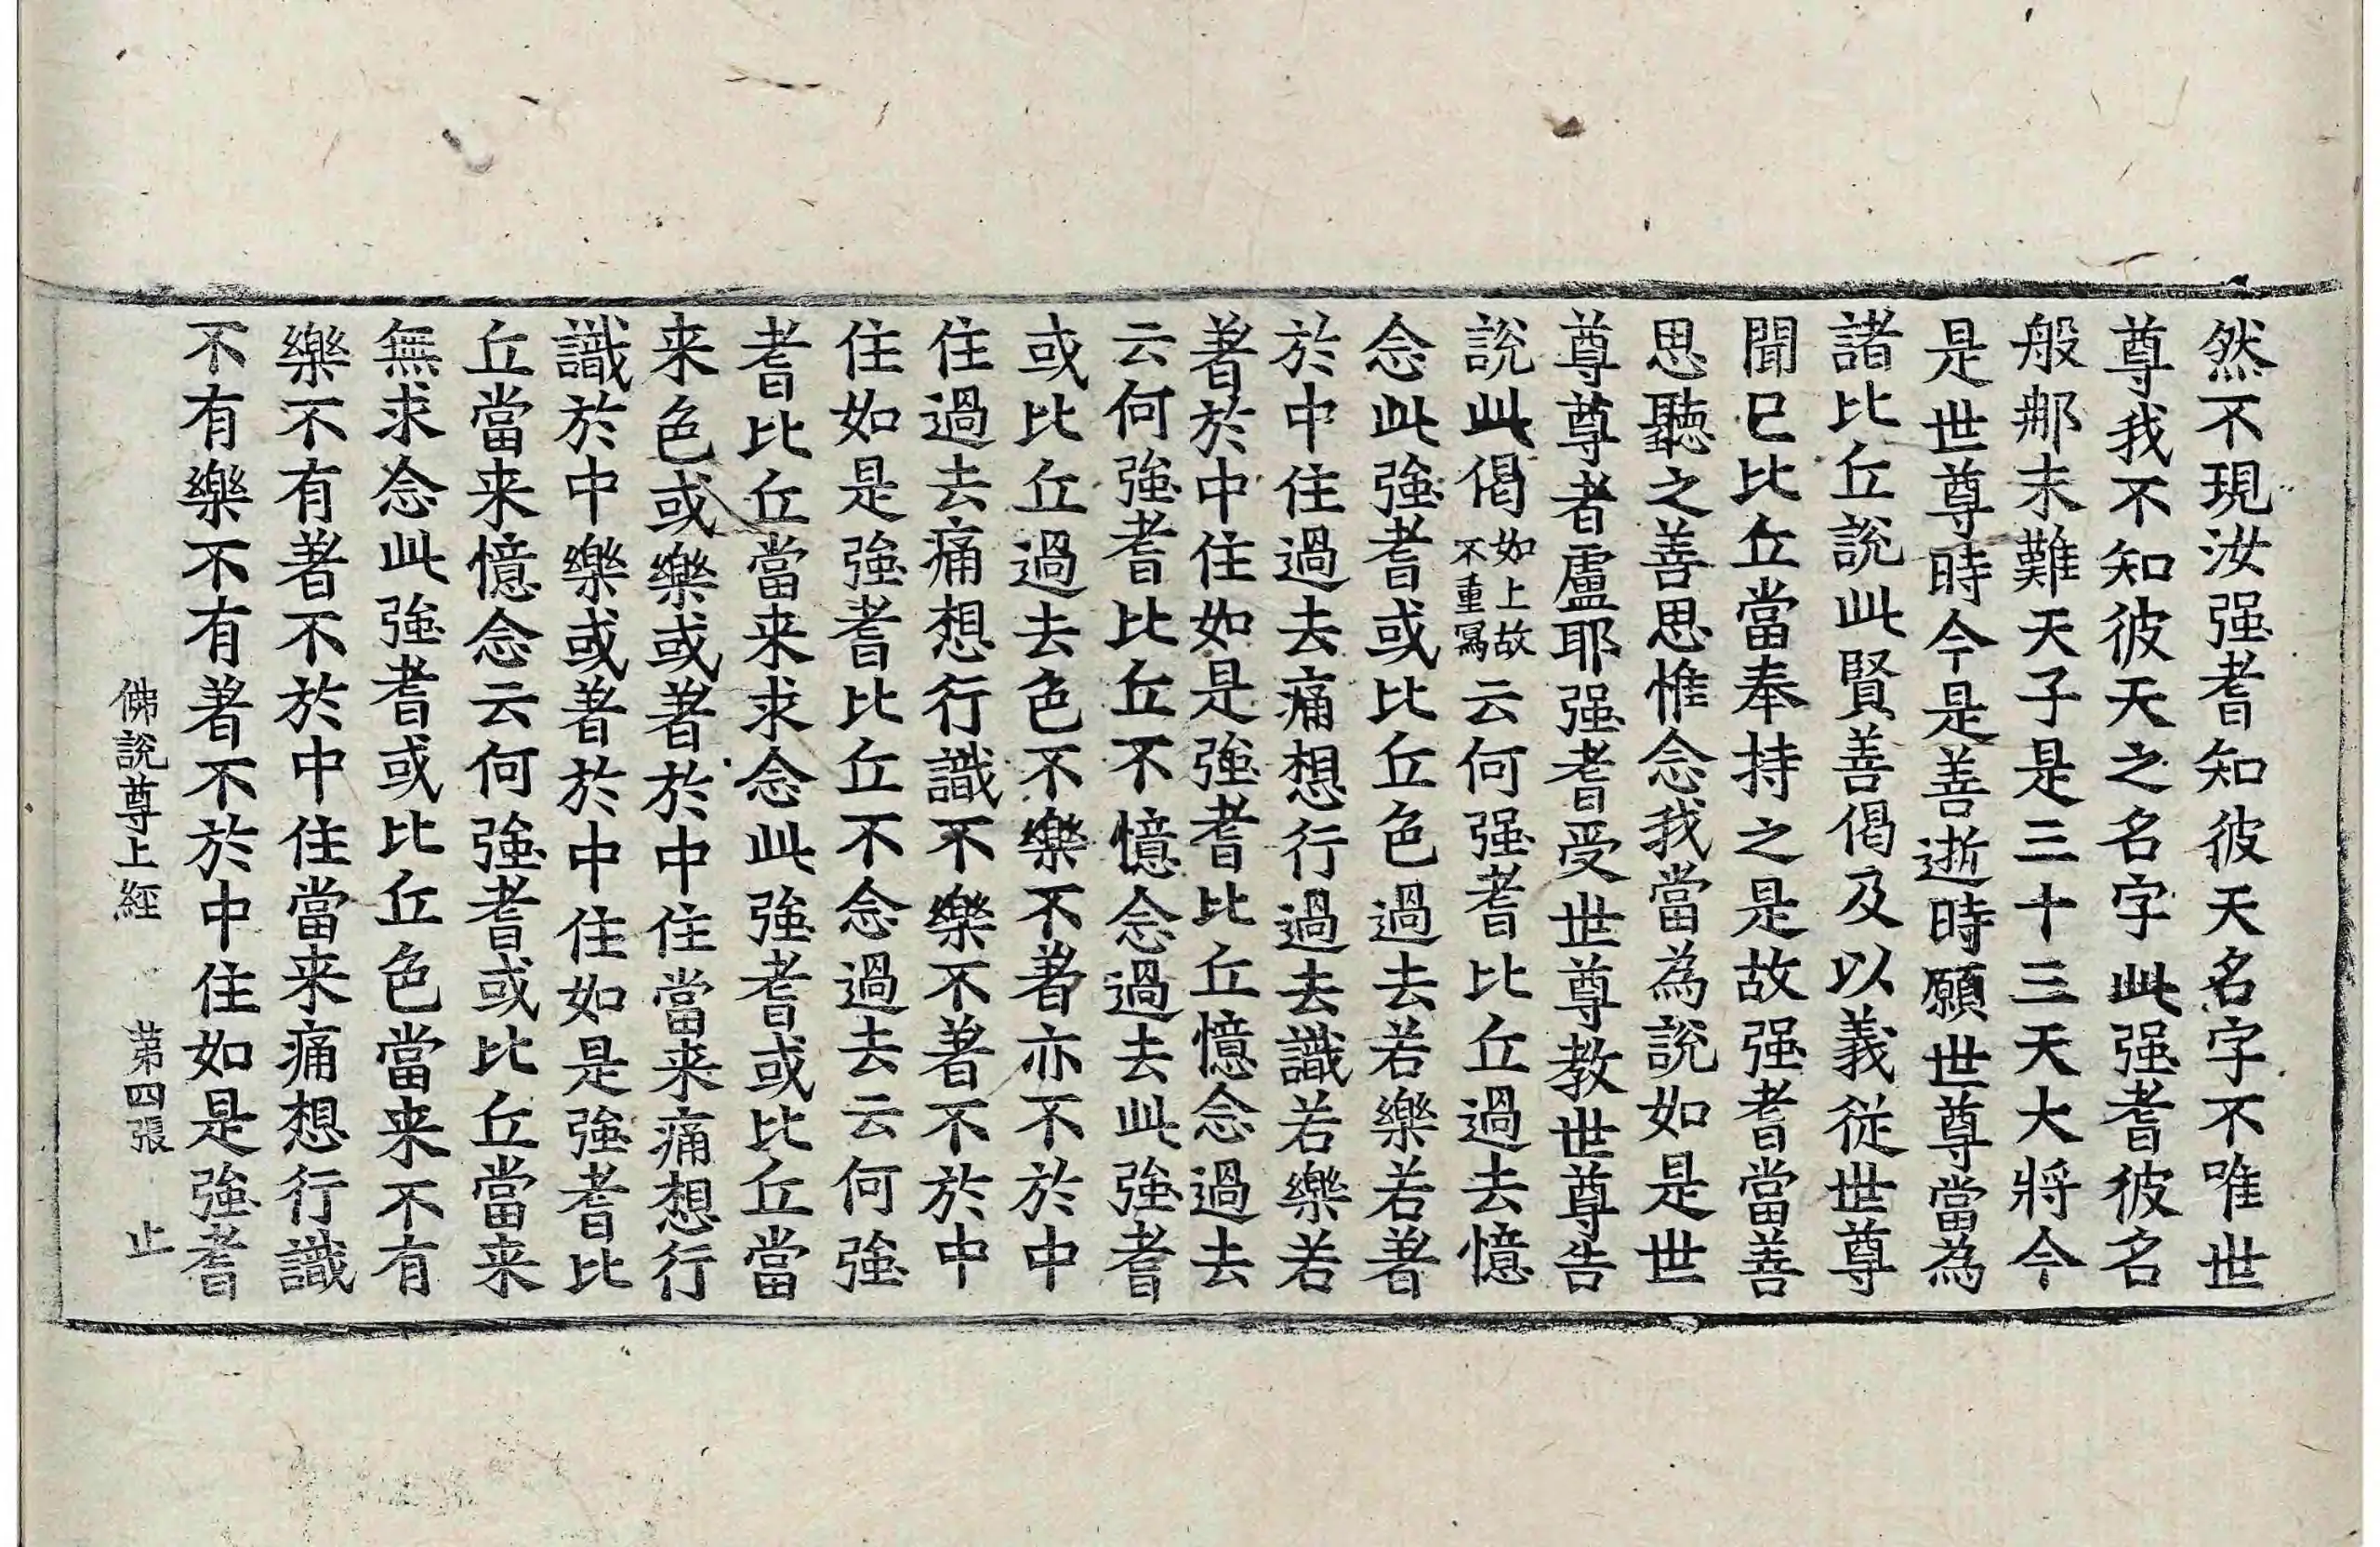 然不現汝强耆知彼天名字不唯世
尊我不知彼天之名字此强耆彼名
般那末難天子是三十三天大將今
是世尊時今是善逝時願世尊當為
諸比丘說此賢善偈及以義従世尊
聞已比丘當奉持之是故强耆當善
思聽之善思惟念我當為說如是世
尊尊者盧耶强耆受世尊教世尊告
說此偈如上故不重冩云何强耆比丘過去憶
念此強耆或比丘色過去若樂若著
於中住過去痛想行過去識若樂若
著於中住如是強耆比丘憶念過去
云何強耆比丘不憶念過去此強耆
或比丘過去色不樂不著亦不於中
住過去痛想行識不樂不著不於中
住如是強耆比丘不念過去云何強
耆比丘當来求念此強耆或比丘當
来色或樂或著於中住當来痛想行
識於中樂或著於中住如是強耆比
丘當来憶念云何強耆或比丘當来
無求念此強耆或比丘色當来不有
樂不有著不於中住當来痛想行識
不有樂不有著不於中住如是強耆
佛說尊上經 第四張 止